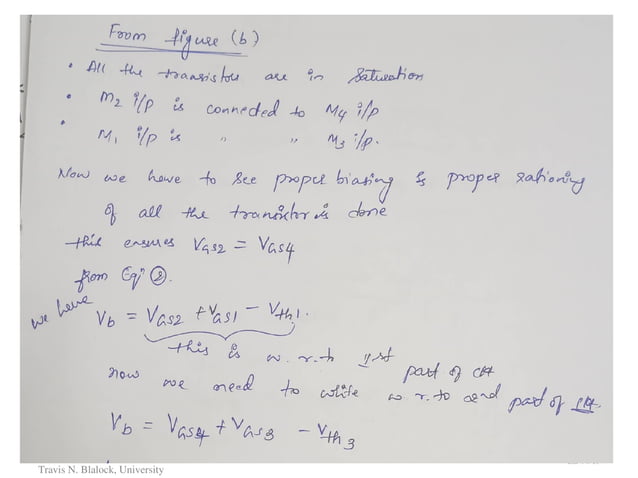 From figure (b)
• All the transistors are in saturation
• M2 i/p is connected to M4 i/p
• M1 i/p is " " M3 i/p.
Now we have to see proper biasing & proper rationing
of all the transistor is done
this ensures VGS2 = VGS4
from Eqn ②.
we have Vb = VGS2 + VGS1 − Vth1.
this is w.r.to 1st part of ckt
now we need to write w r.to 2nd part of ckt.
Vb = VGS4 + VGS3 − Vth3
Travis N. Blalock, University